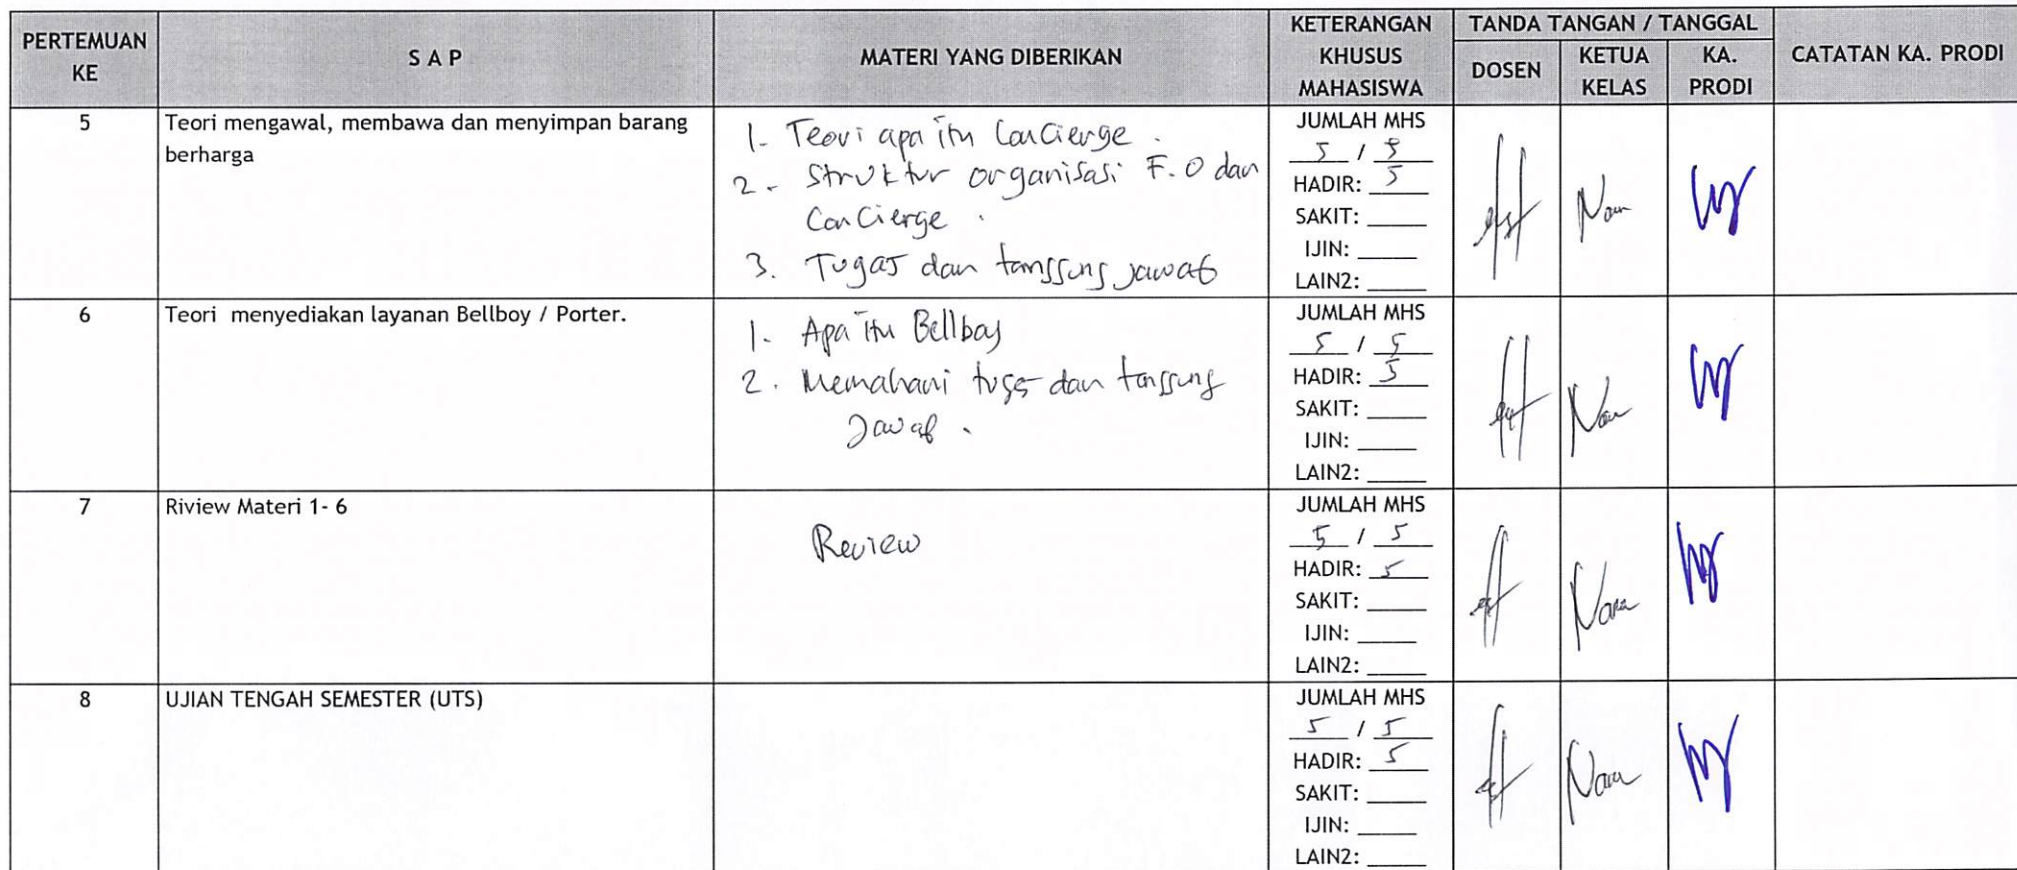 PERTEMUAN KE
S A P
MATERI YANG DIBERIKAN
KETERANGAN KHUSUS MAHASISWA
TANDA TANGAN / TANGGAL
DOSEN
KETUA KELAS
KA. PRODI
CATATAN KA. PRODI
5
Teori mengawal, membawa dan menyimpan barang
berharga
1. Teori apa itu Concierge.
2. Struktur organisasi F.O dan
Concierge.
3. Tugas dan tanggung jawab
JUMLAH MHS
5 / 5
HADIR: 5
SAKIT:
IJIN:
LAIN2:
Nara
6
Teori menyediakan layanan Bellboy / Porter.
1. Apa itu Bellboy
2. Memahami tugas dan tanggung
Jawab.
JUMLAH MHS
5 / 5
HADIR: 5
SAKIT:
IJIN:
LAIN2:
Nara
7
Riview Materi 1- 6
Review
JUMLAH MHS
5 / 5
HADIR: 5
SAKIT:
IJIN:
LAIN2:
Nara
8
UJIAN TENGAH SEMESTER (UTS)
JUMLAH MHS
5 / 5
HADIR: 5
SAKIT:
IJIN:
LAIN2:
Nara